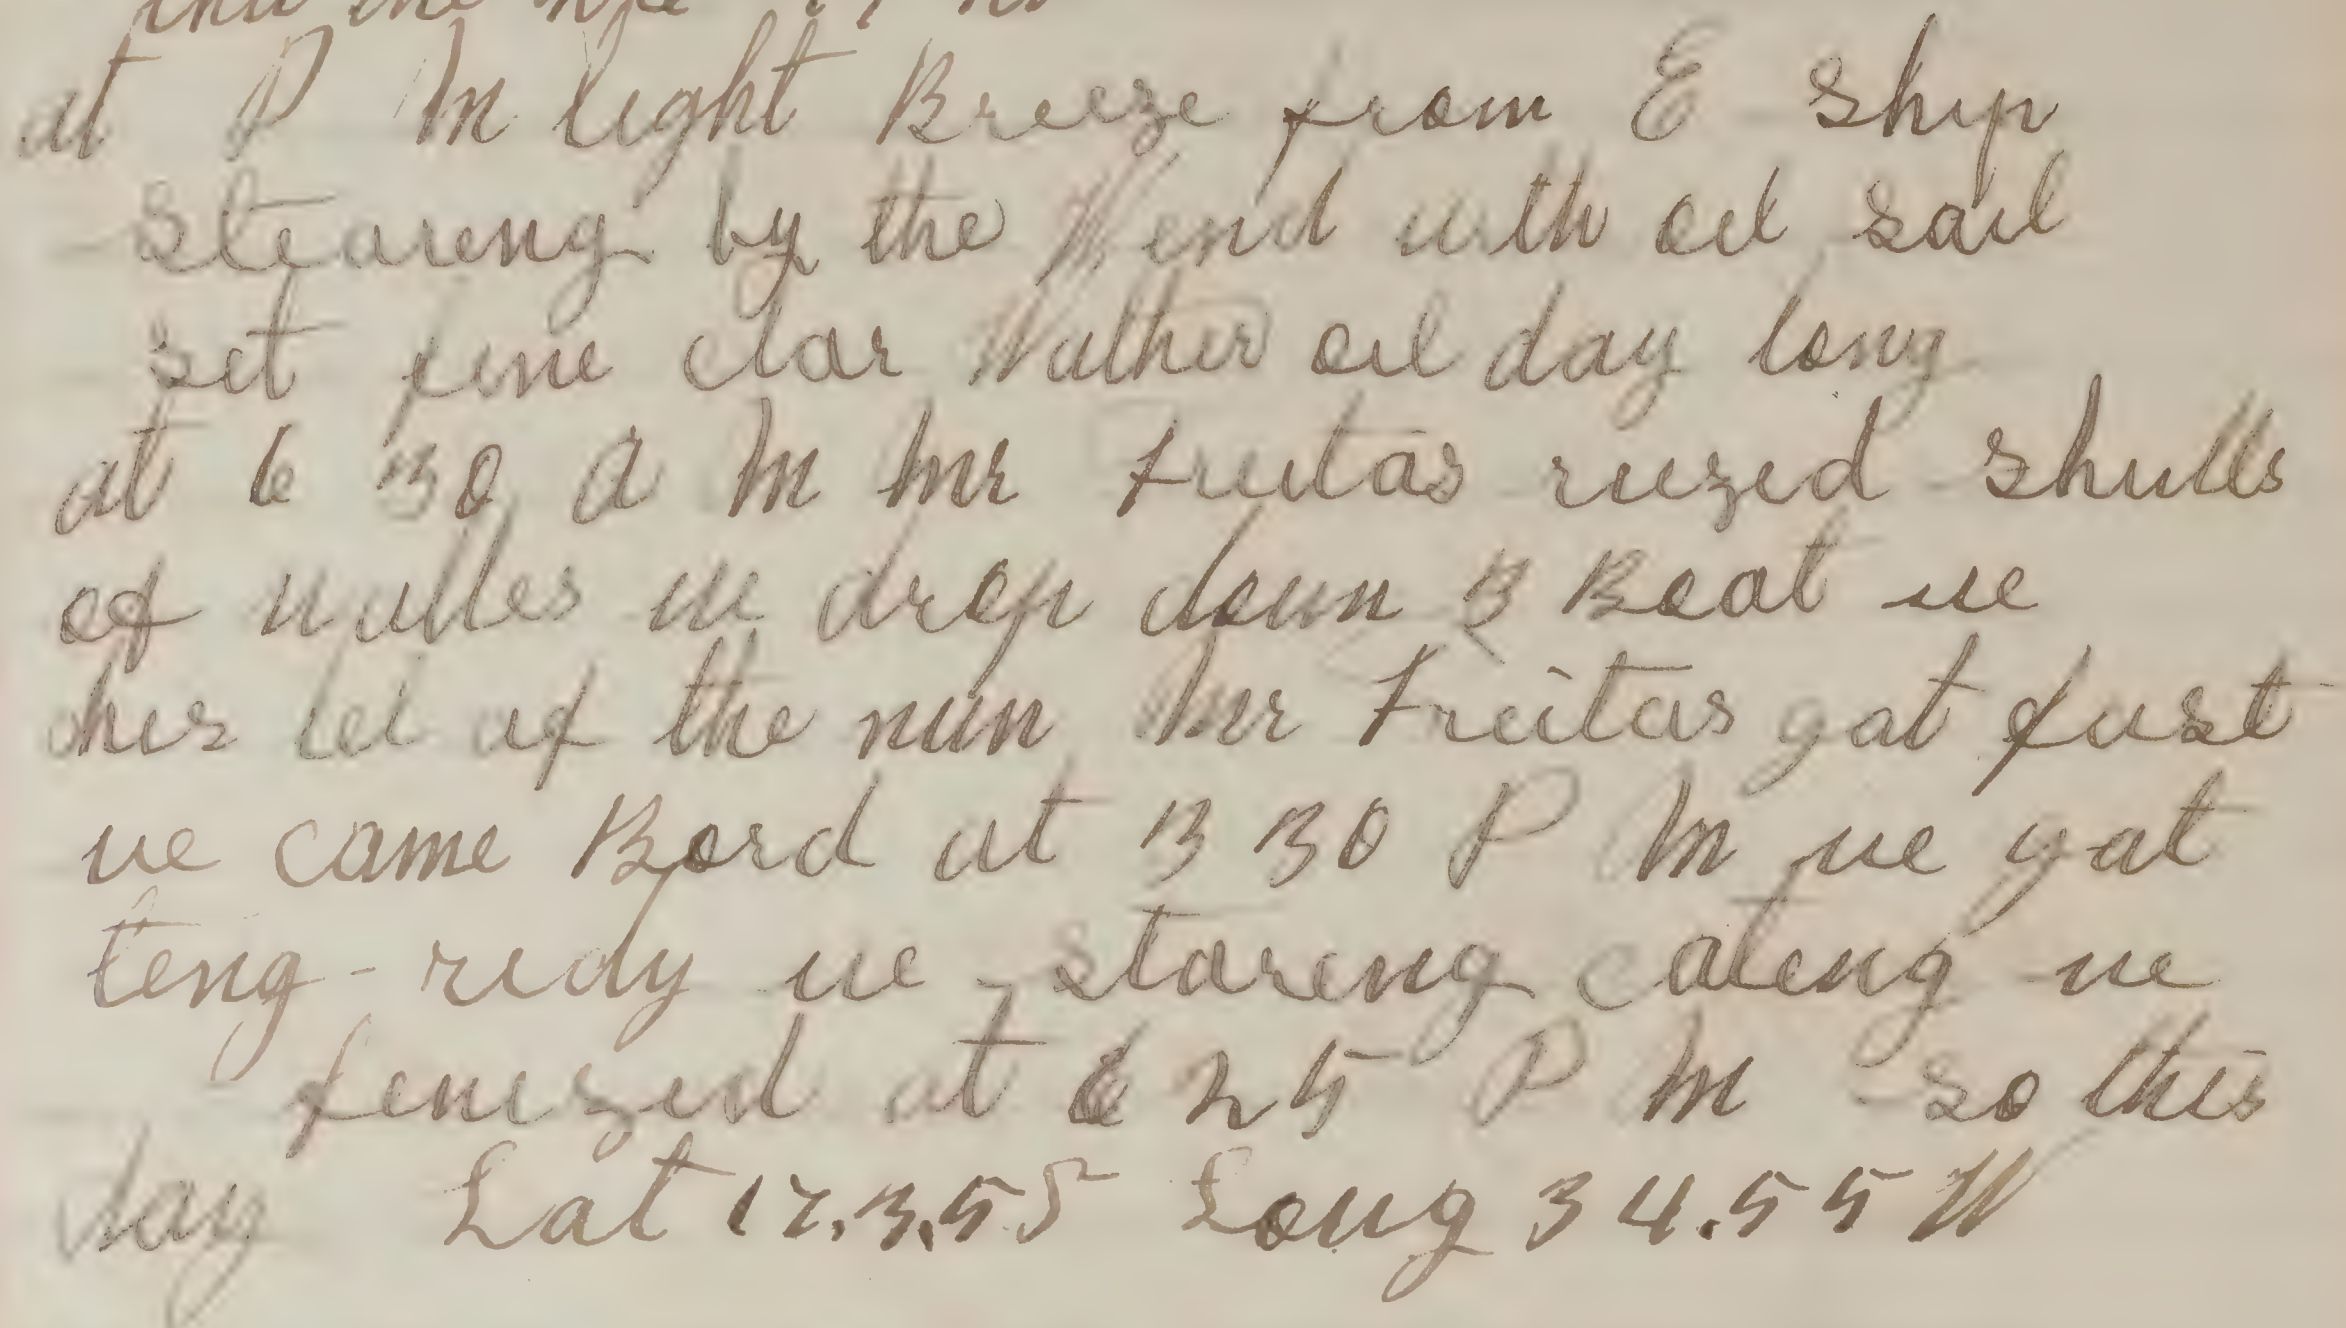 at P M light Breeze from E ship
stearing by the Wend with oil sail
set fine clar Wather oil day long
at 6 30 A M Mr Freitas riezed shulls
of walles we drop down 3 Boat we
hes let of the nun Mr Freitas gat fast
we came Bord at 3 30 P M we gat
teng - redy we staring cateng we
fenezed at 6 25 P M so this
day Lat 17.3.55 Long 34.55 W